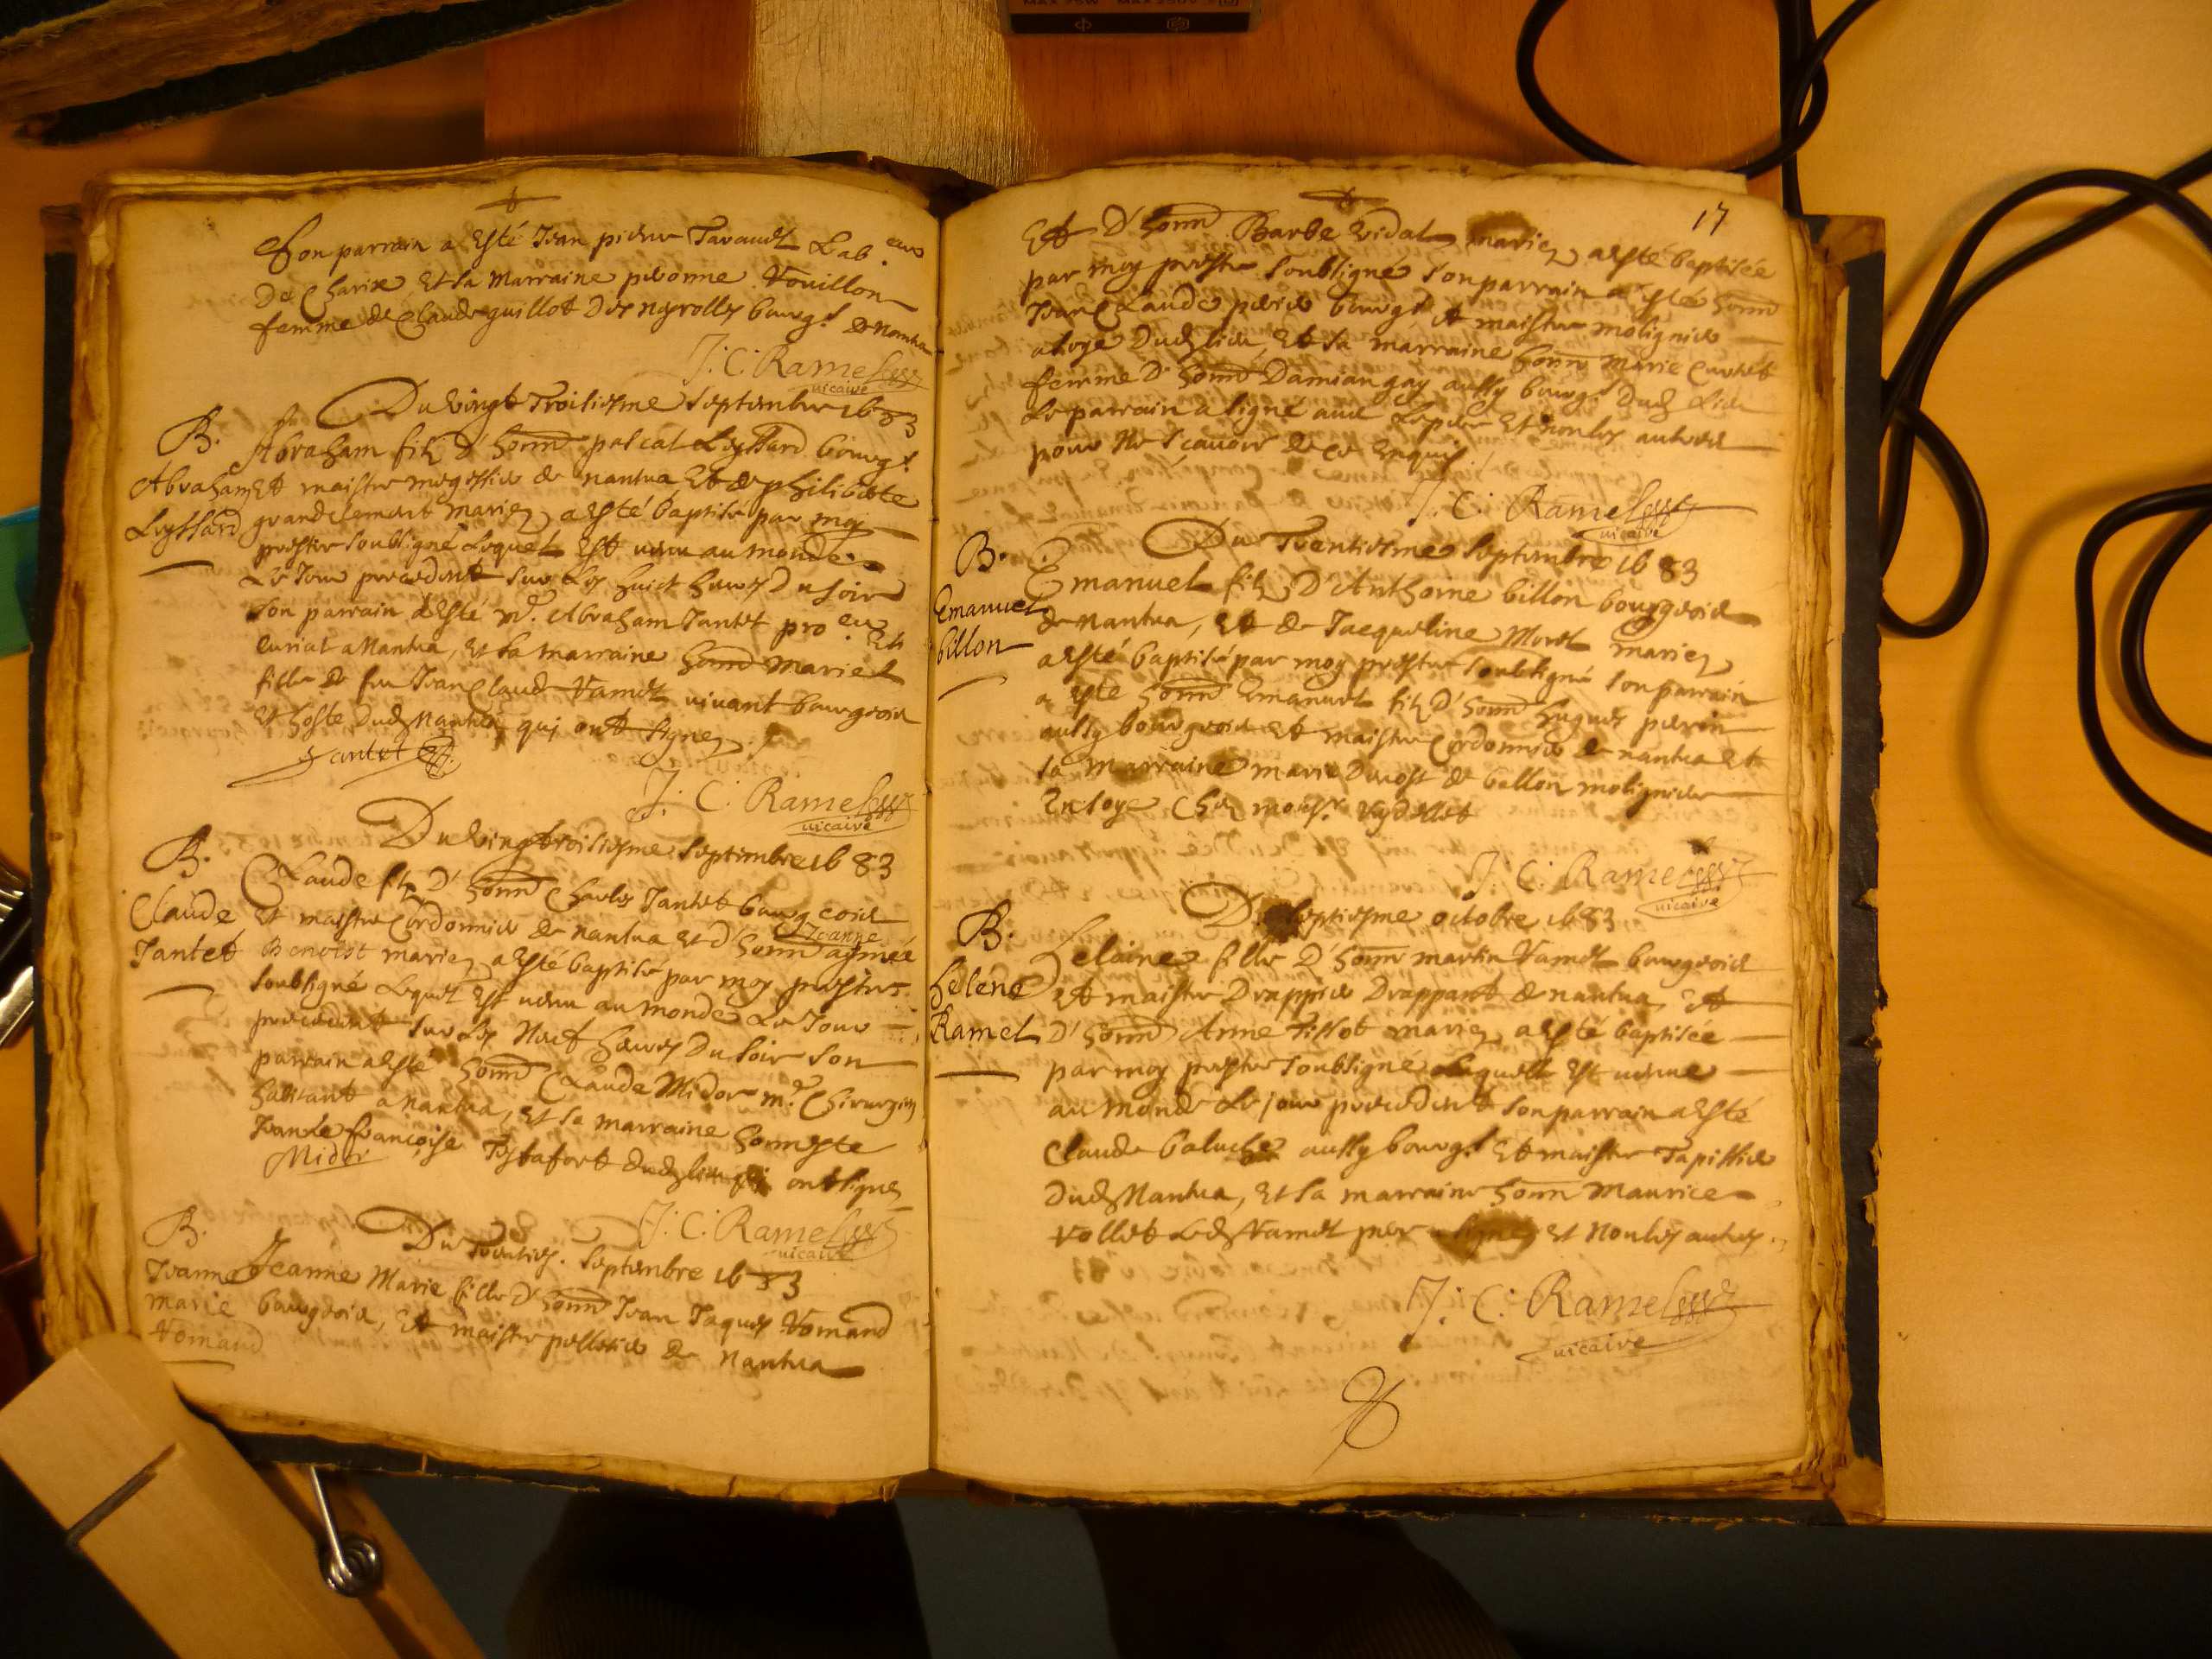 MAX 75W MAX 250V
Son parrain a Esté Jean pierre Tavaudt Lab.eur
De Charix Et sa Marraine peronne Vouillon
femme de Claude guillot Des neyrolles bourg.s de Nantua
J. C. Ramel
vicaire
Du vingt Troisiesme septembre 1683
B.
Abraham
Leyssard
Abraham filz D' honn pascal Leyssard bourg.s
Et maistre megessier de nantua Et de philiberte
grandclement mariez a esté baptisé par moy
prestre soubsigné Lequel Est venu au monde
Le Jour precedent sur Les huict heures Du soir
Son parrain a Esté M.e Abraham Jantet pro.eur Et
curial a Nantua, Et sa marraine honn Mariel
fille de feu Jean Claude Ramel vivant bourgeois
Et hoste Dudt Nantua qui ont signez
Jantet
J. C. Ramel
vicaire
Du vingt troisiesme septembre 1683
B.
Claude
Jantet
Claude filz D' honn Charles Jantet bourgeois
Et maistre Cordonnier de nantua Et D' honn Jeanne aymée
Benoist mariez a esté baptisé par moy prestre
soubsigné Lequel Est venu au monde Le Jour
precedent sur Les Neuf heures Du soir Son
parrain a esté honn Claude Midor m.e Chirurgien
habitant a Nantua, Et sa marraine honneste
Jeanne françoise Tystafort dudt lieu qui ont signez
Midor
J. C. Ramel
vicaire
Du Trenties. Septembre 1683
B.
Jeanne
marie
Romand
Jeanne Marie fille D' honn Jean Jaques Romand
bourgeois, Et maistre pelletier de Nantua
17
Et D' honn Barbe Vidal mariez a esté baptisée
par moy prestre soubsigné son parrain a esté honn
Jean Claude perier bourg.s Et maistre molignier
a soye Dudt lieu, Et sa marraine honn Marie Curtet
femme D' honn Damian gay aussy bourg.s Dudt Lieu
Le parrain a signé avec Le pere Et non les autres
pour Ne scavoir de ce Enquis
J. C. Ramel
vicaire
Du Trentiesme septembre 1683
B.
Emanuel
billon
Emanuel filz D'Anthoine billon bourgeois
de Nantua, Et de Jacqueline Morel mariez
a esté baptisé par moy prestre soubsigné son parrain
a esté honn Emanuel filz D' honn hugues perrin
aussy bourgeois Et maistre Cordonnier de nantua Et
sa marraine marie Ducost de bellon molignier
En soye Chez mons.r Vydellet
J. C. Ramel
vicaire
Du septiesme octobre 1683
B.
helene
Ramel
helaine fille D' honn martin Ramel bourgeois
Et maistre Drappier Drappant de nantua Et
D' honn Anne Tissot mariez a esté baptisée
par moy prestre soubsigné Laquelle Est venue
au monde Le jour precedent son parrain a esté
Claude baluche aussy bourg.s Et maistre Tapissier
Dudt Nantua, Et sa marraine honn Maurice
Vollet Ledt Ramel pere a signez Et Non les autres
J. C. Ramel
vicaire